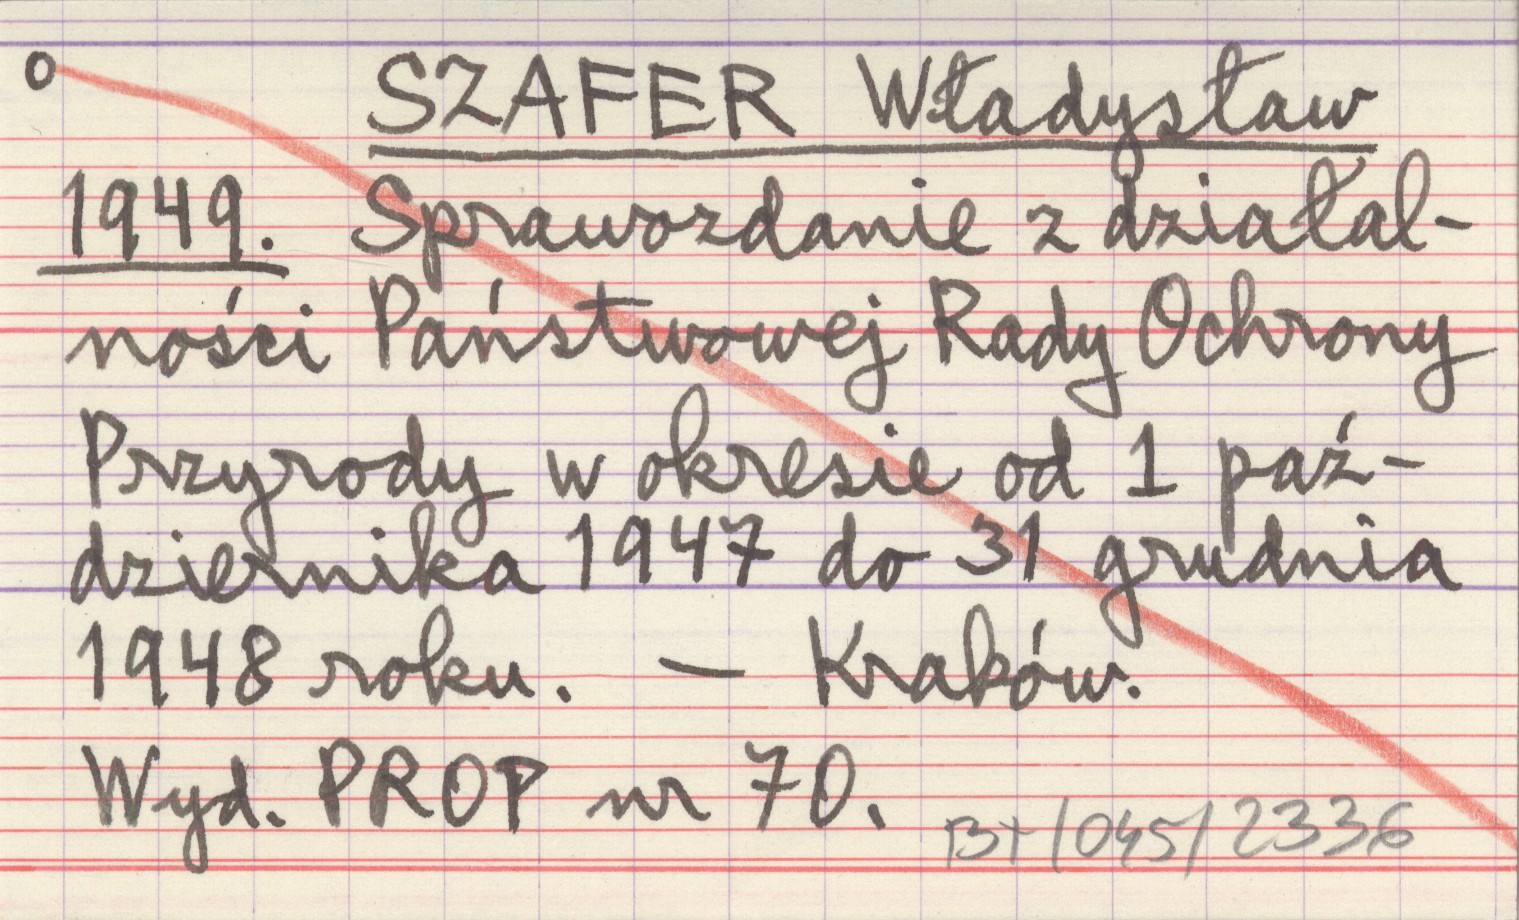 o SZAFER Władysław
1949. Sprawozdanie z działal-
ności Państwowej Rady Ochrony
Przyrody w okresie od 1 paź-
dziernika 1947 do 31 grudnia
1948 roku. — Kraków.
Wyd. PROP nr 70.
Bt/045/2336